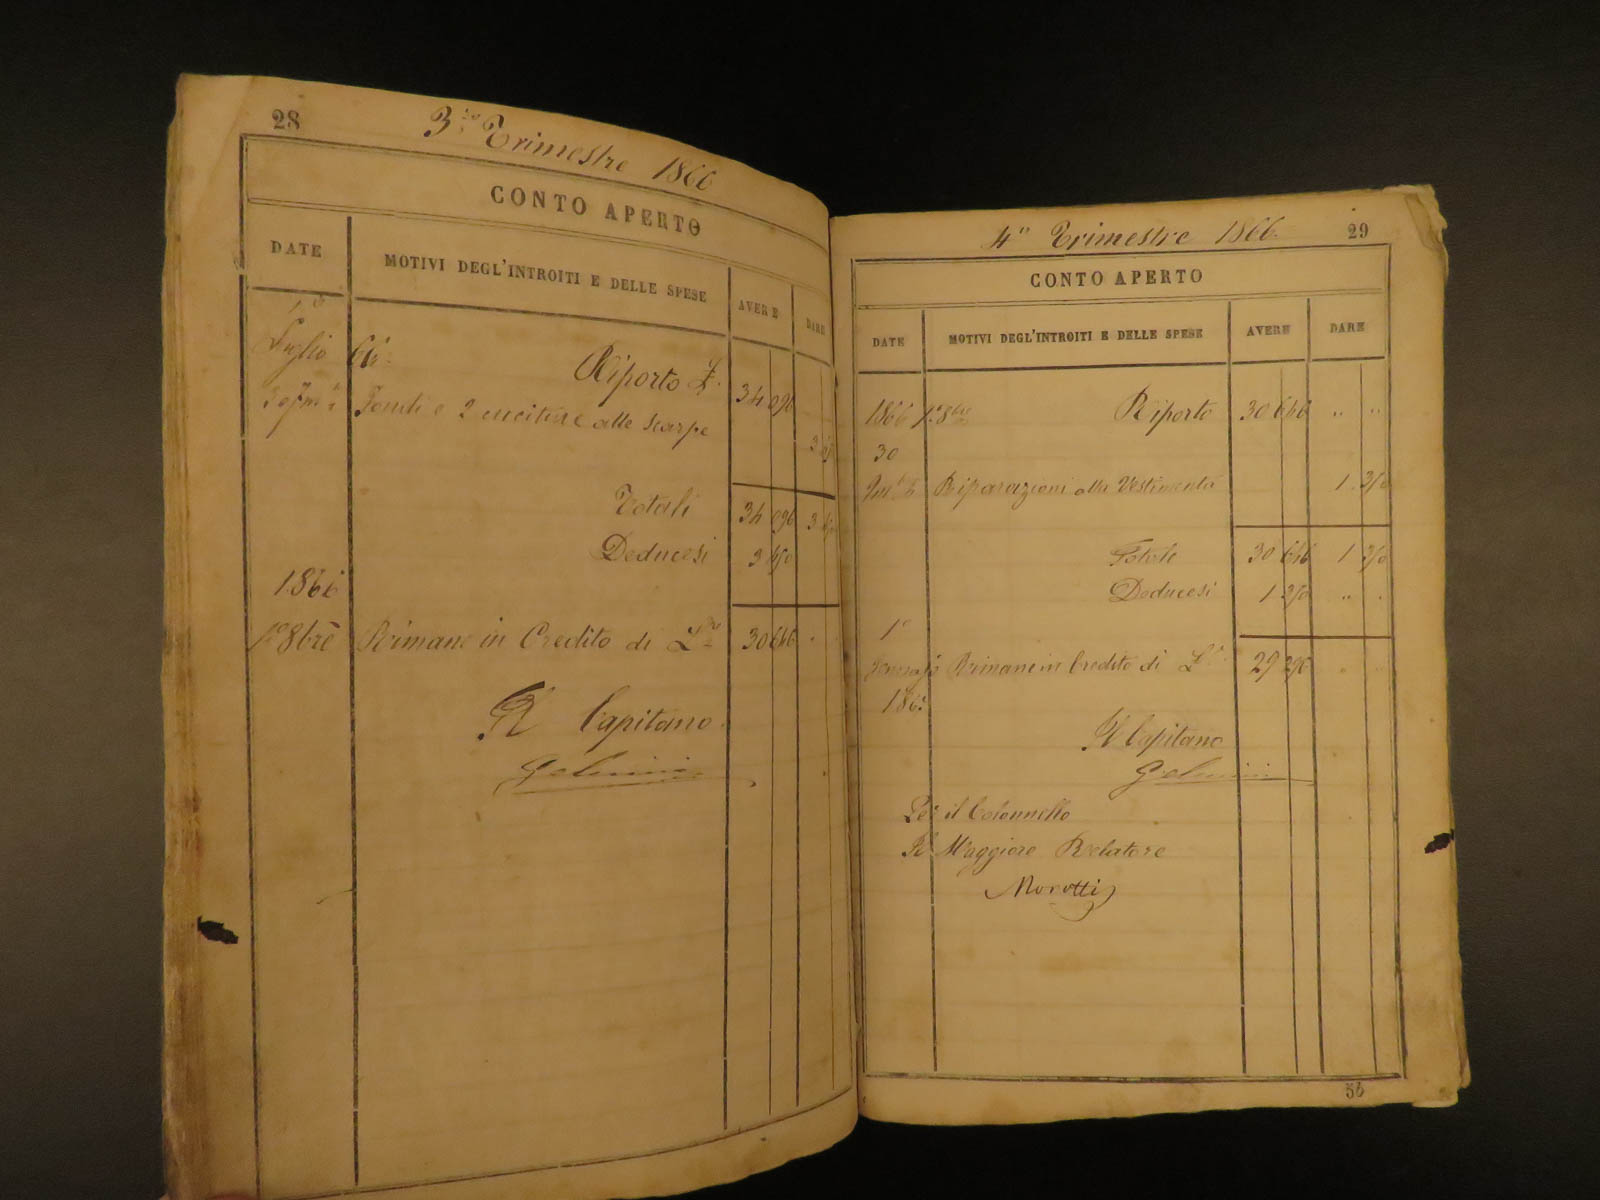 28
3zo Trimestre 1866
CONTO APERTO
DATE
MOTIVI DEGL'INTROITI E DELLE SPESE
AVERE
DARE
1o
Luglio 66
Riporto L.
34 096
30
e 2 cuciture alle scarpe
3 450
Totali
34 096 3 450
Deducesi
3 450
1866
1o 8bre Rimane in Credito di Lre 30 646
Il Capitano
29
4o Trimestre 1866
CONTO APERTO
DATE
MOTIVI DEGL'INTROITI E DELLE SPESE
AVERE
DARE
1866 1o 8bre Riporto 30 646 " "
30
Riparazioni alla Vestimenta 1.350
Totale 30 646 1 350
Deducesi 1 350 " "
1o
Gennajo Rimane in Credito di L 29 296
186
Il Capitano
Per il Colonnello
Il Maggiore Relatore
Morotti
56